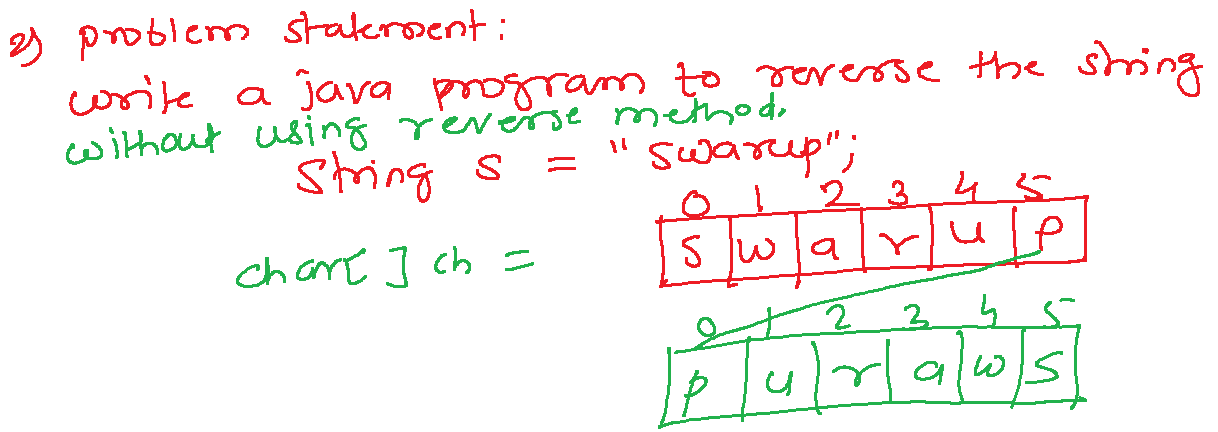 2) problem statement:
write a java program to reverse the string
without using reverse method.
String s = "swarup";
0 1 2 3 4 5
s w a r u p
char[] ch =
0 1 2 3 4 5
p u r a w s